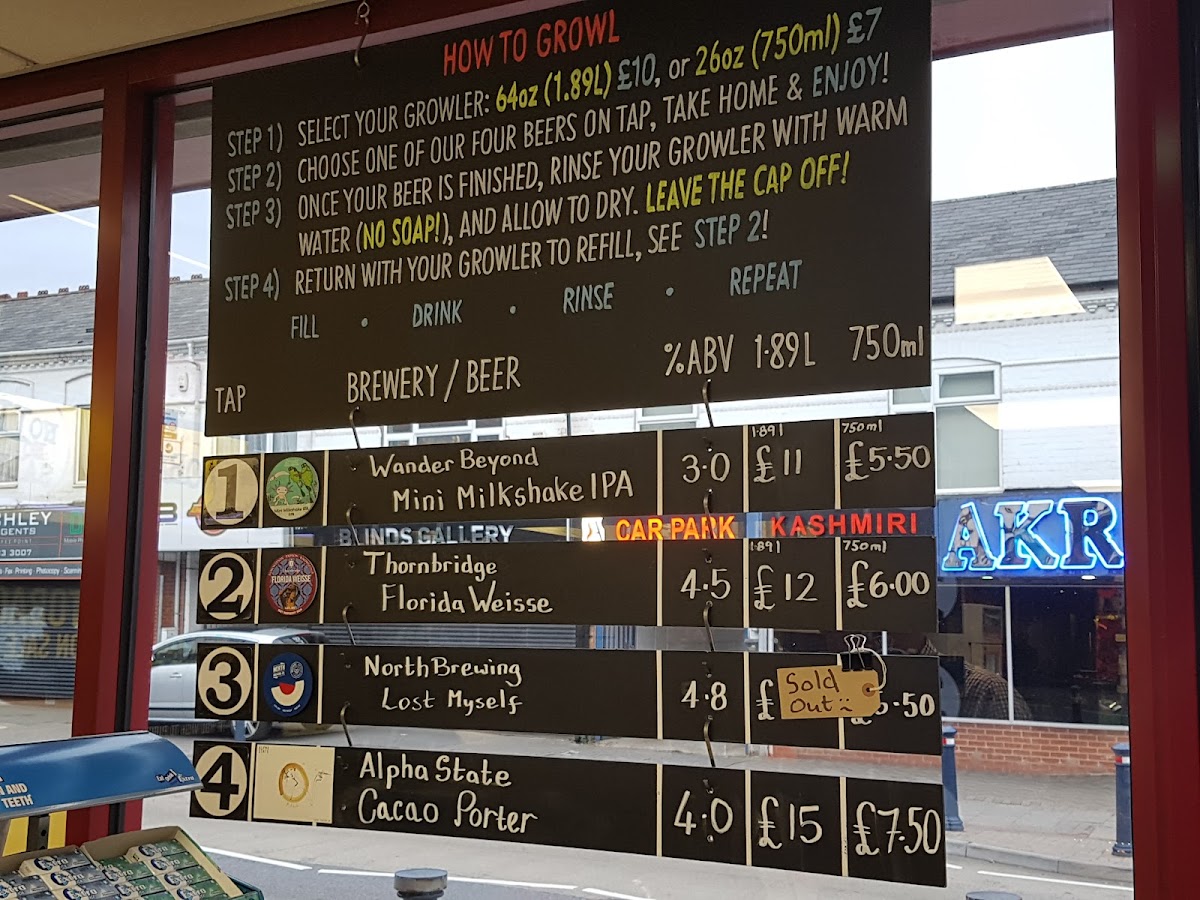 HOW TO GROWL
STEP 1) SELECT YOUR GROWLER: 64oz (1.89L) £10, or 26oz (750ml) £7
STEP 2) CHOOSE ONE OF OUR FOUR BEERS ON TAP, TAKE HOME & ENJOY!
STEP 3) ONCE YOUR BEER IS FINISHED, RINSE YOUR GROWLER WITH WARM
WATER (NO SOAP!), AND ALLOW TO DRY. LEAVE THE CAP OFF!
STEP 4) RETURN WITH YOUR GROWLER TO REFILL, SEE STEP 2!
FILL • DRINK • RINSE • REPEAT
TAP BREWERY / BEER %ABV 1·89L 750ml
1 Wander Beyond
Mini Milkshake IPA 3·0 1·89l £11 750ml £5·50
BLINDS GALLERY CAR PARK KASHMIRI AKR
2 FLORIDA WEISSE Thornbridge
Florida Weisse 4·5 1·89l £12 750ml £6·00
3 North Brewing
Lost Myself 4·8 £ Sold Out ·50
4 Alpha State
Cacao Porter 4·0 £15 £7·50
HLEY
GENTS
3 3007
AND
TEETH